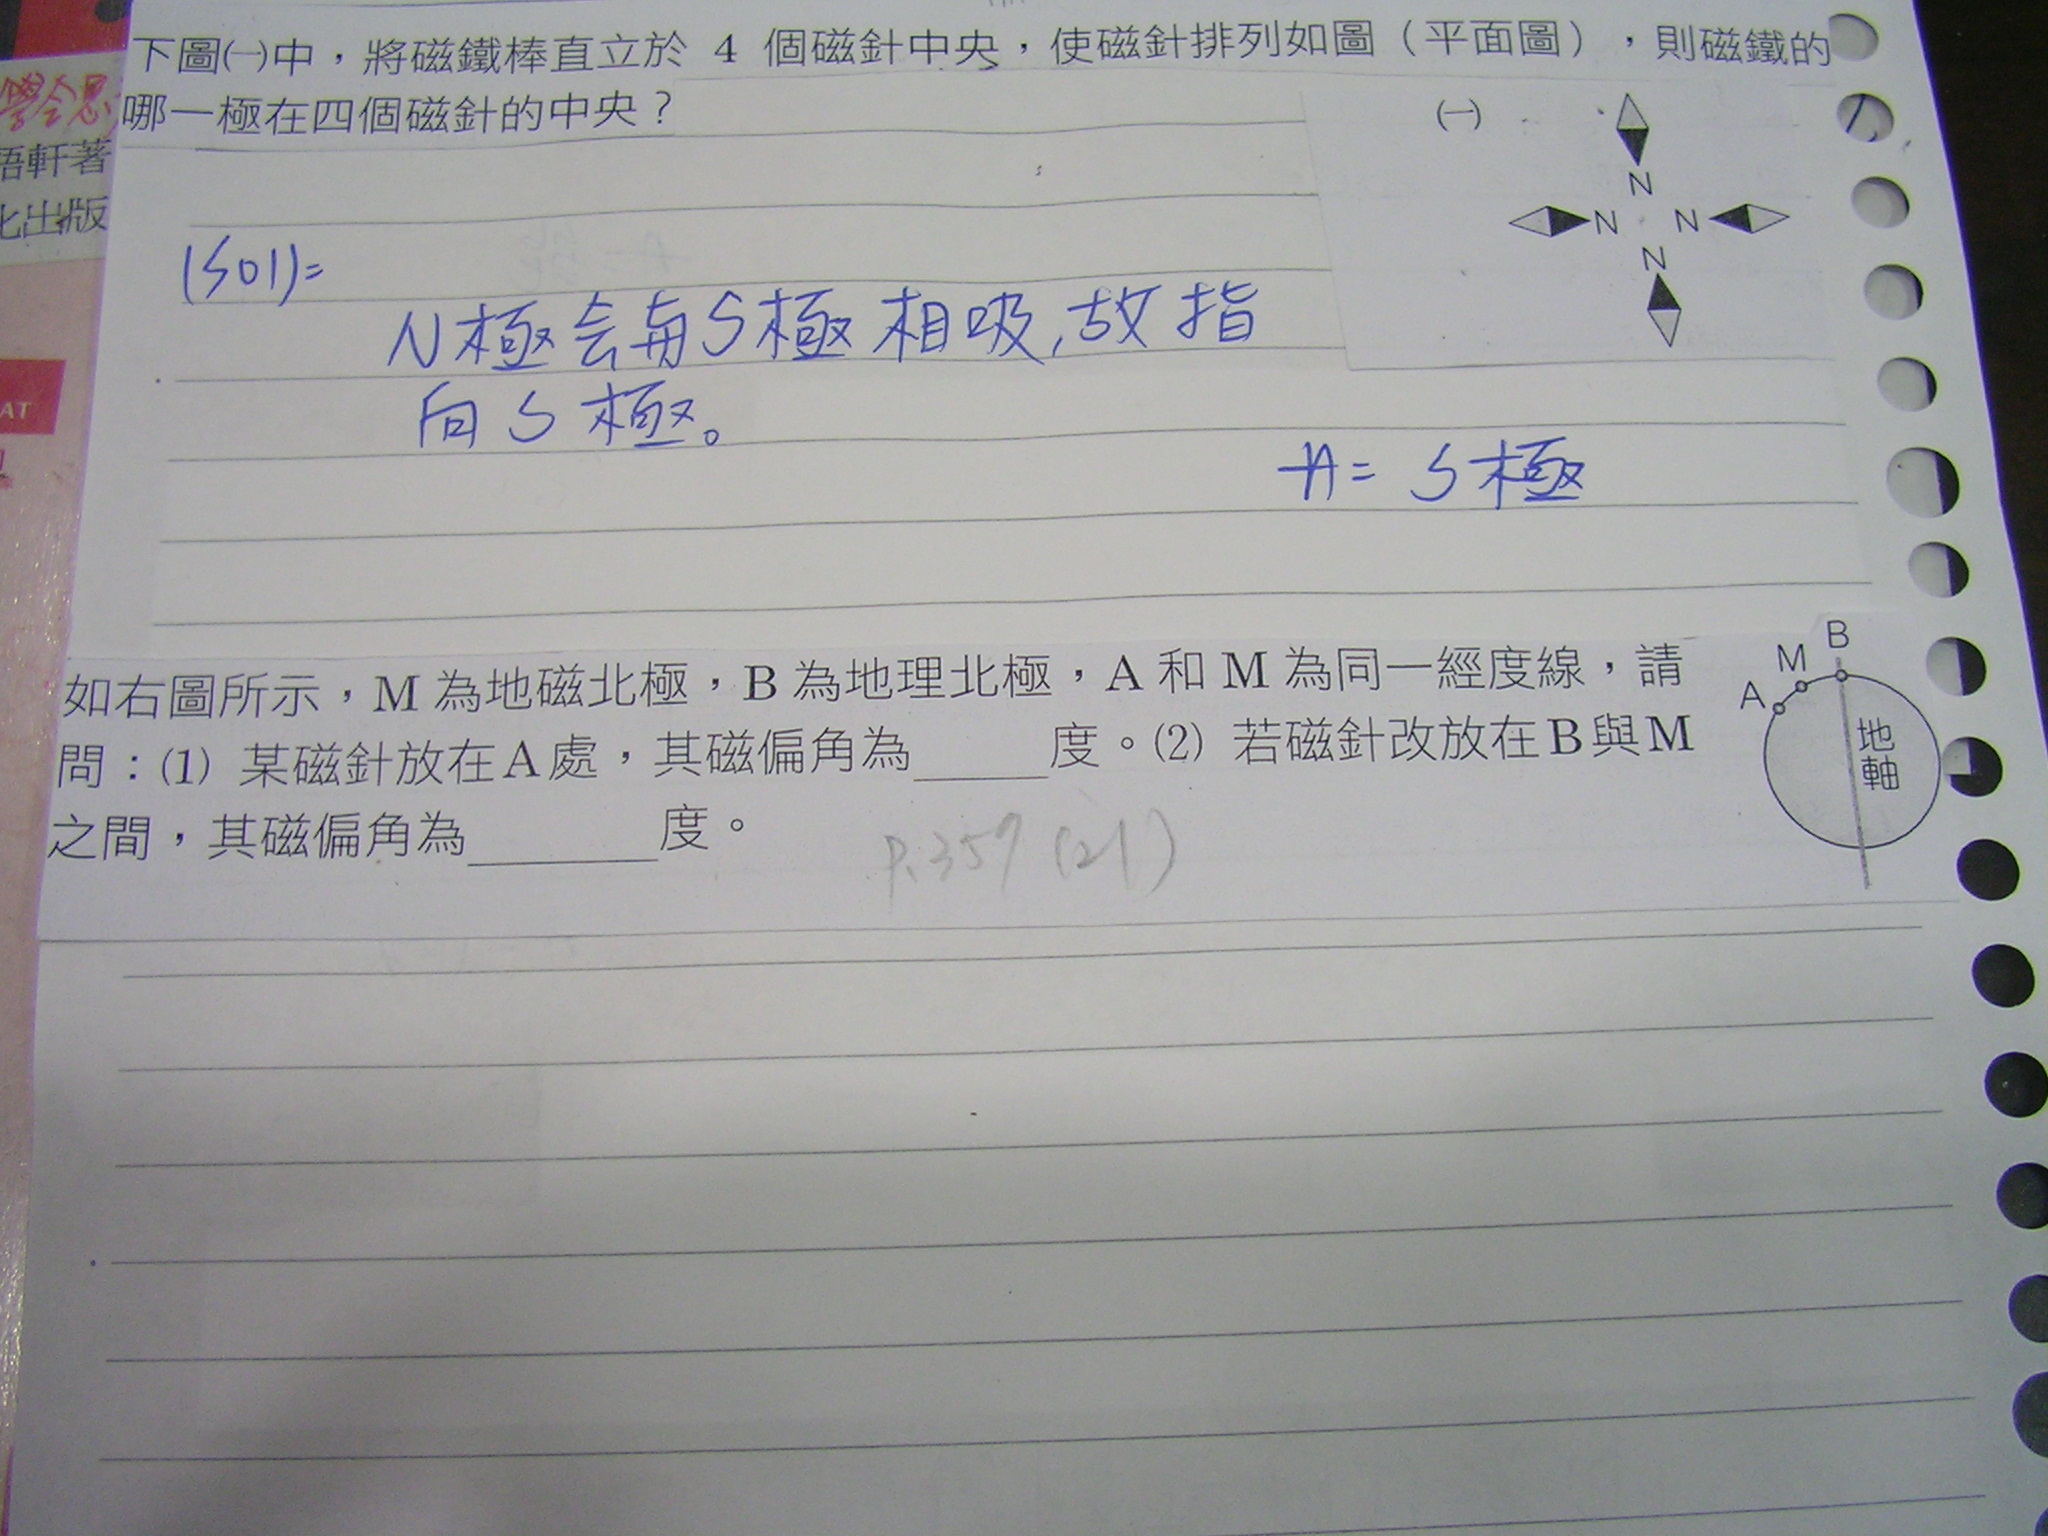 下圖㈠中，將磁鐵棒直立於 4 個磁針中央，使磁針排列如圖（平面圖），則磁鐵的
哪一極在四個磁針的中央？
㈠
N
N N
N
(sol)=
N極会与S極相吸,故指
向S極。
A= S極
如右圖所示，M 為地磁北極，B 為地理北極，A 和 M 為同一經度線，請
問：(1) 某磁針放在A處，其磁偏角為_____度。(2) 若磁針改放在B與M
之間，其磁偏角為_______度。
B
M
A
地軸
P.359 (21)
悟軒著
化出版
AT